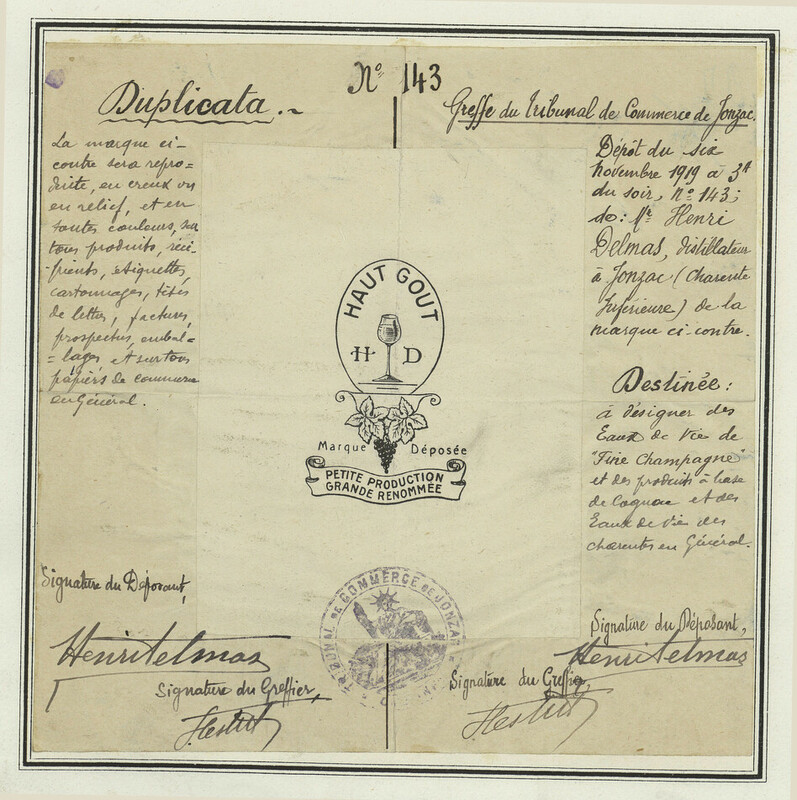 Nº 143
Duplicata.
La marque ci-
contre sera repro=
duite, en creux ou
en relief, et en
toutes couleurs, sur
tous produits, réci-
pients, étiquettes,
cartonnages, têtes
de lettes, factures,
prospectus, embal=
=lages et sur tous
papiers de commerce
en Général.
Signature du Déposant,
Henri Delmas
Signature du Greffier,
HAUT GOUT
H D
Marque Déposée
PETITE PRODUCTION
GRANDE RENOMMÉE
TRIBUNAL DE COMMERCE DE JONZAC
Greffe du Tribunal de Commerce de Jonzac.
Dépôt du six
Novembre 1919 à 3h
du soir, Nº 143;
de: Mr Henri
Delmas, distillateur
à Jonzac (Charente
Inférieure) de la
marque ci-contre.
Destinée:
à désigner des
Eaux de Vie de
"Fine Champagne"
et des produits à base
de Cognac et des
Eaux de Vie des
Charentes en Général.
Signature du Déposant,
Henri Delmas
Signature du Greffier